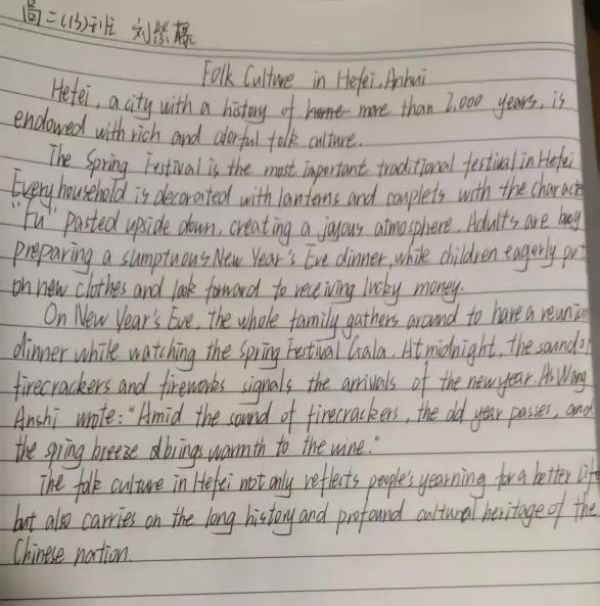 高二(13)班 刘
Folk Culture in Hefei, Anhui
Hefei, a city with a history of more than 2,000 years, is
endowed with rich and colorful folk culture.
The Spring Festival is the most inportant traditional festival in Hefei
Every household is decorated with lanterns and couplets with the charact
"Fu" pasted upside down, creating a joyous atmosphere. Adults are busy
preparing a sumptuous New Year's Eve dinner, while children eagerly put
on new clothes and look forward to receiving lucky money.
On New Year's Eve, the whole family gathers around to have a reunion
dinner while watching the Spring Festival Gala. At midnight, the sound of
firecrackers and fireworks signals the arrivals of the new year. As Wang
Anshi wrote: "Amid the sound of firecrackers, the old year passes, and
the spring breeze brings warmth to the wine."
The folk culture in Hefei not only reflects people's yearning for a better life
but also carries on the long history and profound cultural heritage of the
Chinese nation.